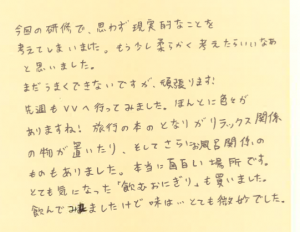 今回の研修で、思わず現実的なことを
考えてしまいました。もう少し柔らかく考えたらいいなあ
と思いました。
まだうまくできないですが、頑張ります!
先週もVVへ行ってみました。ほんとに色々が
ありますね!旅行の本のとなりがリラックス関係
の物が置いたり、そしてさらにお風呂関係の
ものもありました。本当に面白い場所です。
とても気になった「飲むおにぎり」も買いました。
飲んでみましたけど味は…とても微妙でした。